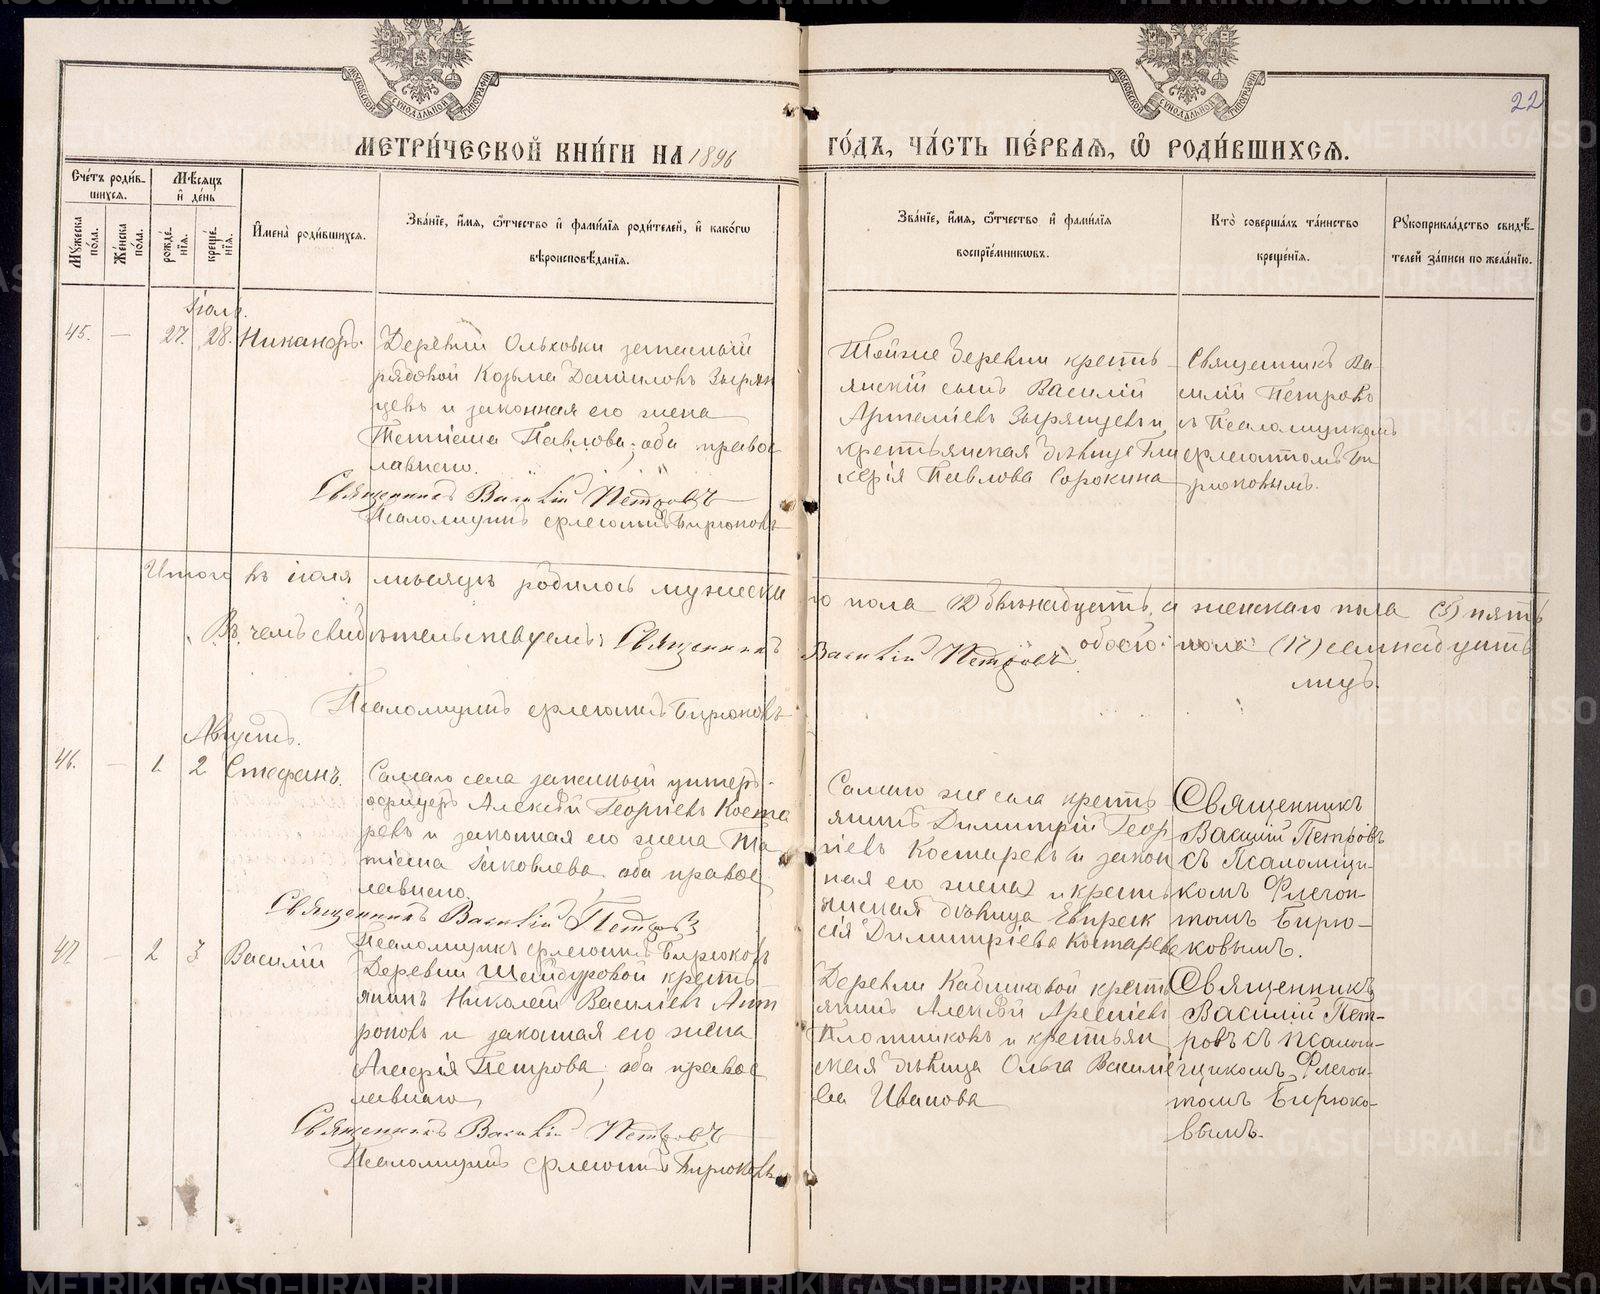 22
МЕТРИ́ЧЕСКОЙ КНИ́ГИ НА 1896
ГО́ДЪ, ЧА́СТЬ ПЕ́РВАЯ, Ѡ РОДИ́ВШИХСЯ.
Сче́тъ роди́в-
шихся.
Мѣ́сяцъ
и҆ де́нь
Мꙋ́жеска
по́ла.
Же́нска
пола.
рожде́-
нїя.
креще́-
нїя.
И҆мена̀ роди́вшихся.
Зва́нїе, и҆́мя, ѻ҆́тчество и҆ фами́лїя роди́телей, и҆ како́гѡ
вѣроисповѣ́данїя.
Зва́нїе, и҆́мя, ѻ҆́тчество и҆ фами́лїя
воспрїе́мникѡвъ.
Кто̀ соверша́лъ та́инство
креще́нїя.
Рꙋкоприкла́дство свидѣ́-
телей за́писи по жела́нїю.
Іюль.
45. — 27. 28. Никаноръ.
Деревни Ольховки запасный
рядовой Козьма Даниловъ Зырян
цевъ и законная его жена
Татіана Павлова; оба правос
лавнаго.
Священникъ Василій Петровъ
Псаломщикъ Флегонтъ Бирюковъ
Тойже деревни кресть
янскій сынъ Василій
Зырянцевъ и
крестьянская дѣвица Гли
керія Павлова Сорокина
Священникъ Ва-
силій Петровъ
съ Псаломщикомъ
Флегонтомъ Би
рюковымъ.
Итого въ іюлѣ мѣсяцѣ родилось мужеска
го пола (12) двѣнадцать, а женскаго пола (5) пять
обоего пола (17) семнадцать
лицъ.
Въ чемъ свидѣтельствуемъ: Священникъ
Василій Петровъ.
Псаломщикъ Флегонтъ Бирюковъ
Августъ.
46. — 1. 2 Стефанъ.
Самаго села запасный унтеръ-
офицеръ Алексѣй Георгіевъ Коста
ревъ и законная его жена Та
тіана Іаковлева, оба правос
лавнаго
Священникъ Василій Петровъ
Псаломщикъ Флегонтъ Бирюковъ
Самаго же села кресть
янинъ Димитрій Геор
гіевъ Костаревъ (и закон
ная его жена) и кресть
янская дѣвица Евпракс
сія Димитріева Костарева
Священникъ
Василій Петровъ
съ Псаломщи-
комъ Флегон-
томъ Бирю-
ковымъ.
47 — 2 3 Василій
Деревни Шайдуровой кресть
янинъ Николай Васильевъ Ант
роповъ и законная его жена
Петрова; оба правос
лавнаго
Священникъ Василій Петровъ
Псаломщикъ Флегонтъ Бирюковъ
Деревни Кадниковой кресть
янинъ Алексѣй Арсеніевъ
Плотниковъ и крестьян
ская дѣвица Ольга Василіе
ва Иванова
Священникъ
Василій Пет-
ровъ съ псалом-
щикомъ Флегон-
томъ Бирюко-
вымъ.
METRIKI.GASO-URAL.RU